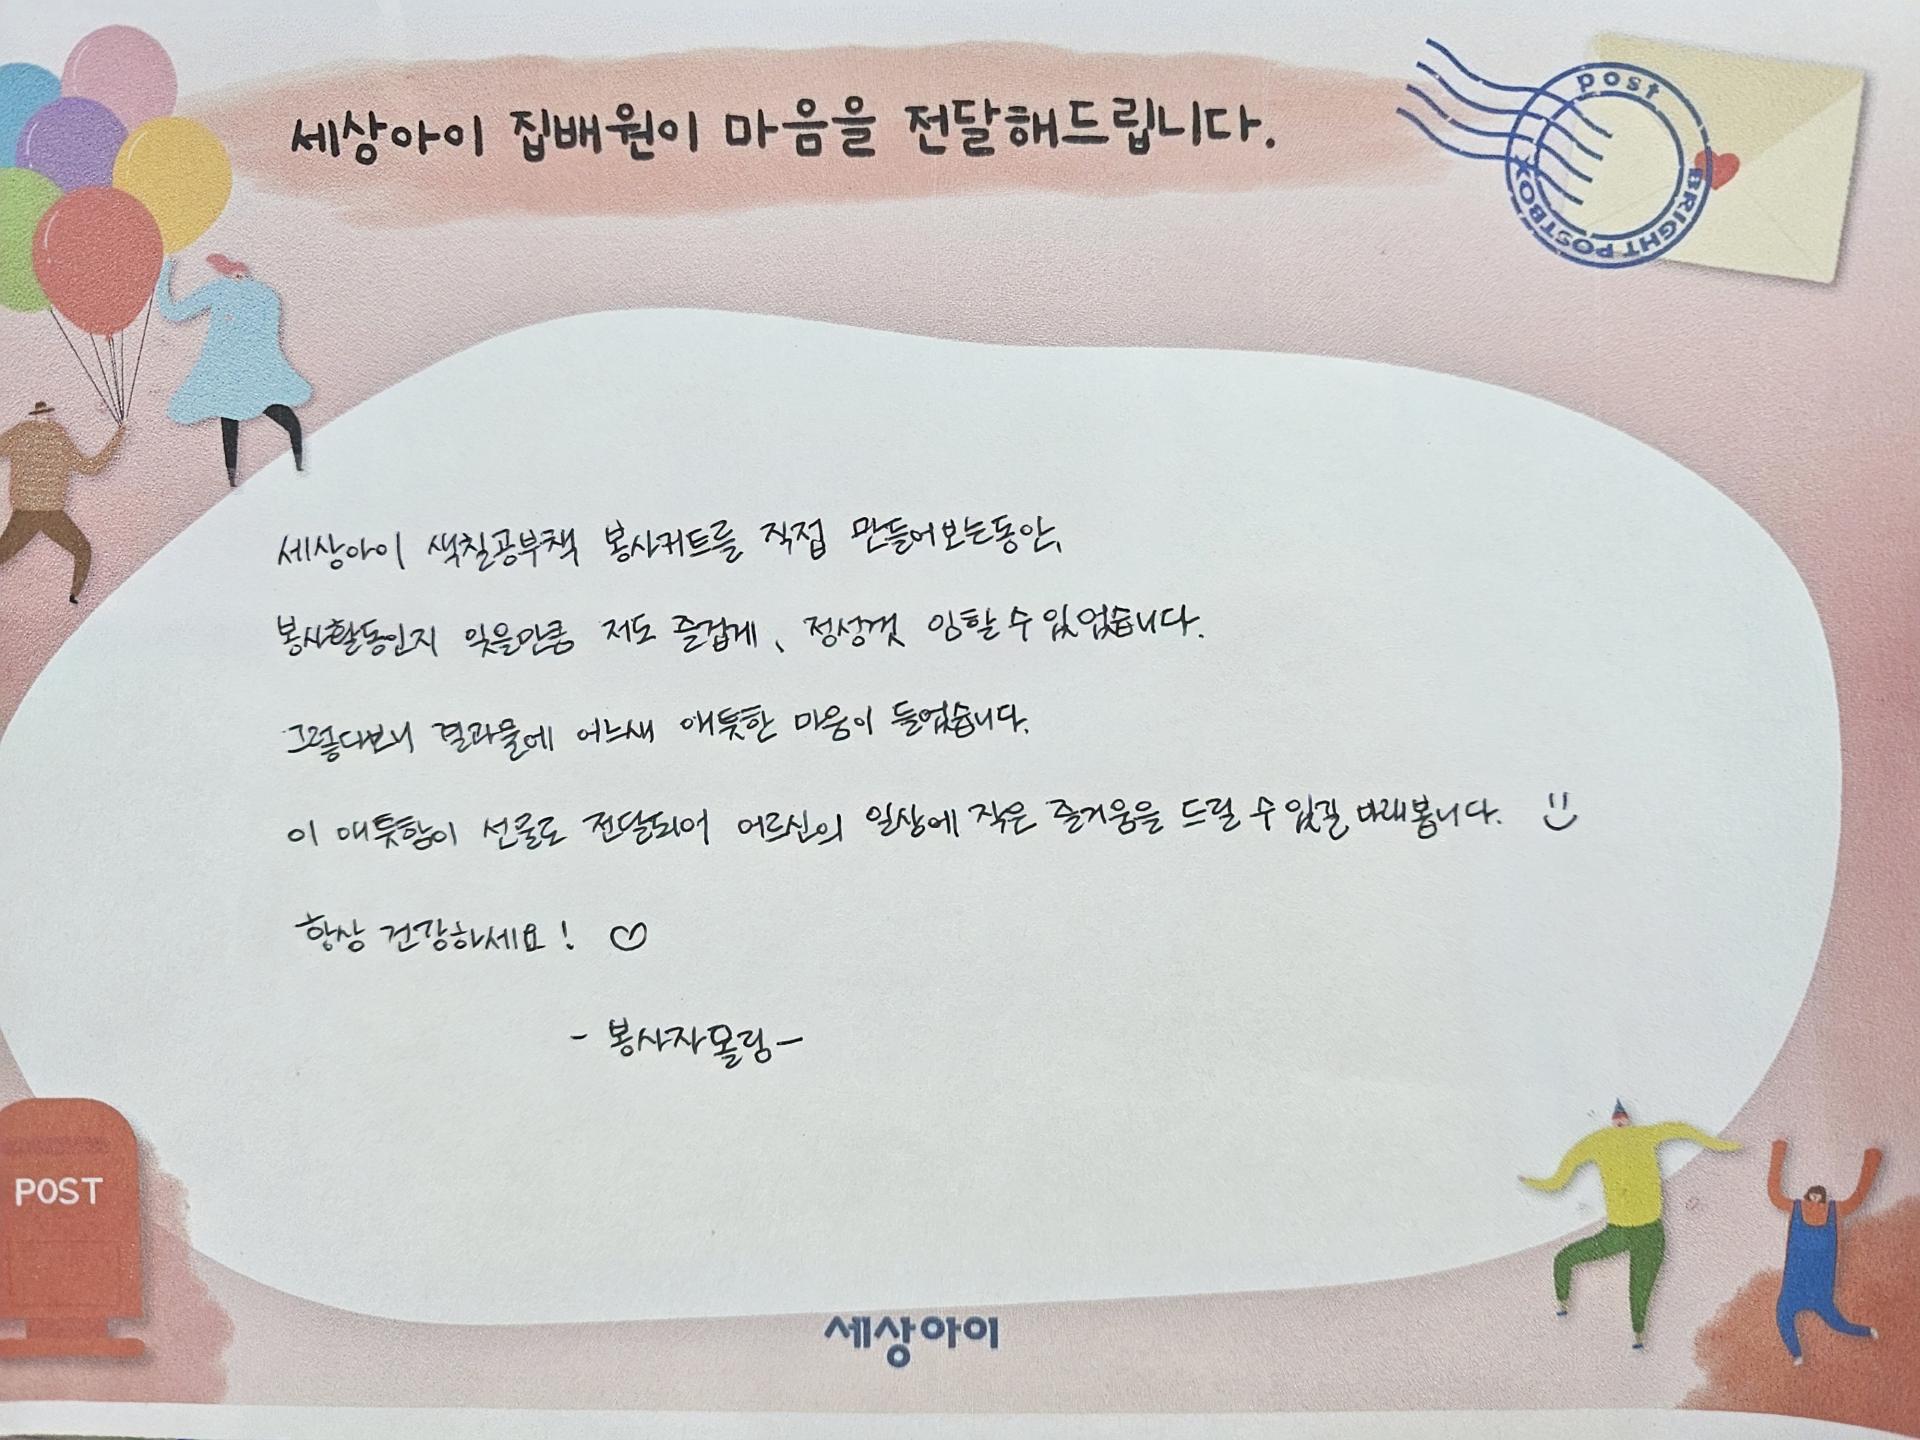 세상아이 집배원이 마음을 전달해드립니다.
post
BRIGHT POSTBOX
세상아이 색칠공부책 봉사키트를 직접 만들어보는동안,
봉사활동인지 잊을만큼 저도 즐겁게, 정성껏 임할 수 있었습니다.
그렇다보니 결과물에 어느새 애틋한 마음이 들었습니다.
이 애틋함이 선물로 전달되어 어르신의 일상에 작은 즐거움을 드릴 수 있길 바래봅니다.
항상 건강하세요! ♡
- 봉사자 몰링 -
POST
세상아이